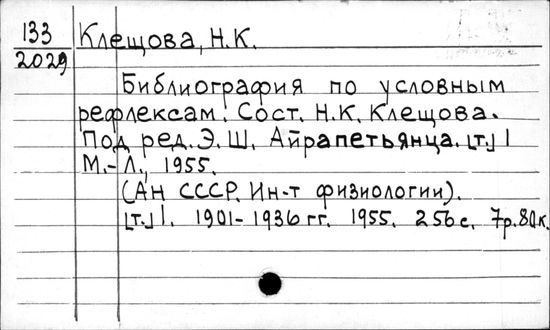 133 Клещова, Н.К.
2029
Библиография по условным
рефлексам. Сост. Н.К. Клещова.
Под ред. Э.Ш. Айрапетьянца. [т.] 1
М.-Л., 1955.
(АН СССР. Ин-т физиологии).
[т.] 1. 1901-1936 гг. 1955. 256 с. 7р.80к.